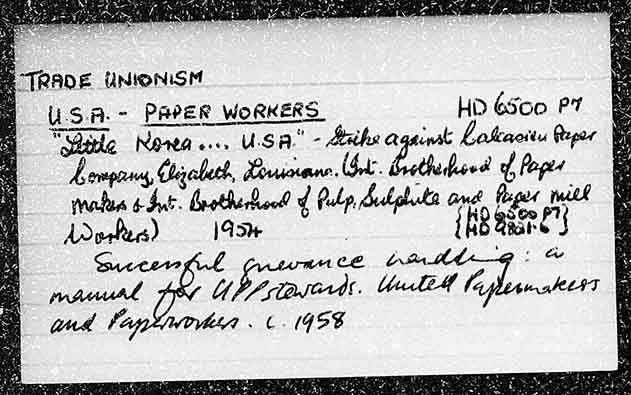 TRADE UNIONISM
U.S.A. - PAPER WORKERS HD 6500 P7
"Little Korea.... U.S.A." - Strike against Calcasieu Paper
Company, Elizabeth, Louisiana. (Int. Brotherhood of Paper
makers & Int. Brotherhood of Pulp, Sulphite and Paper mill
Workers) 1954 {HD 6500 P7}
{HD 9821.6}
Successful grievance handling: a
manual for UPP stewards. United Papermakers
and Paperworkers. c. 1958